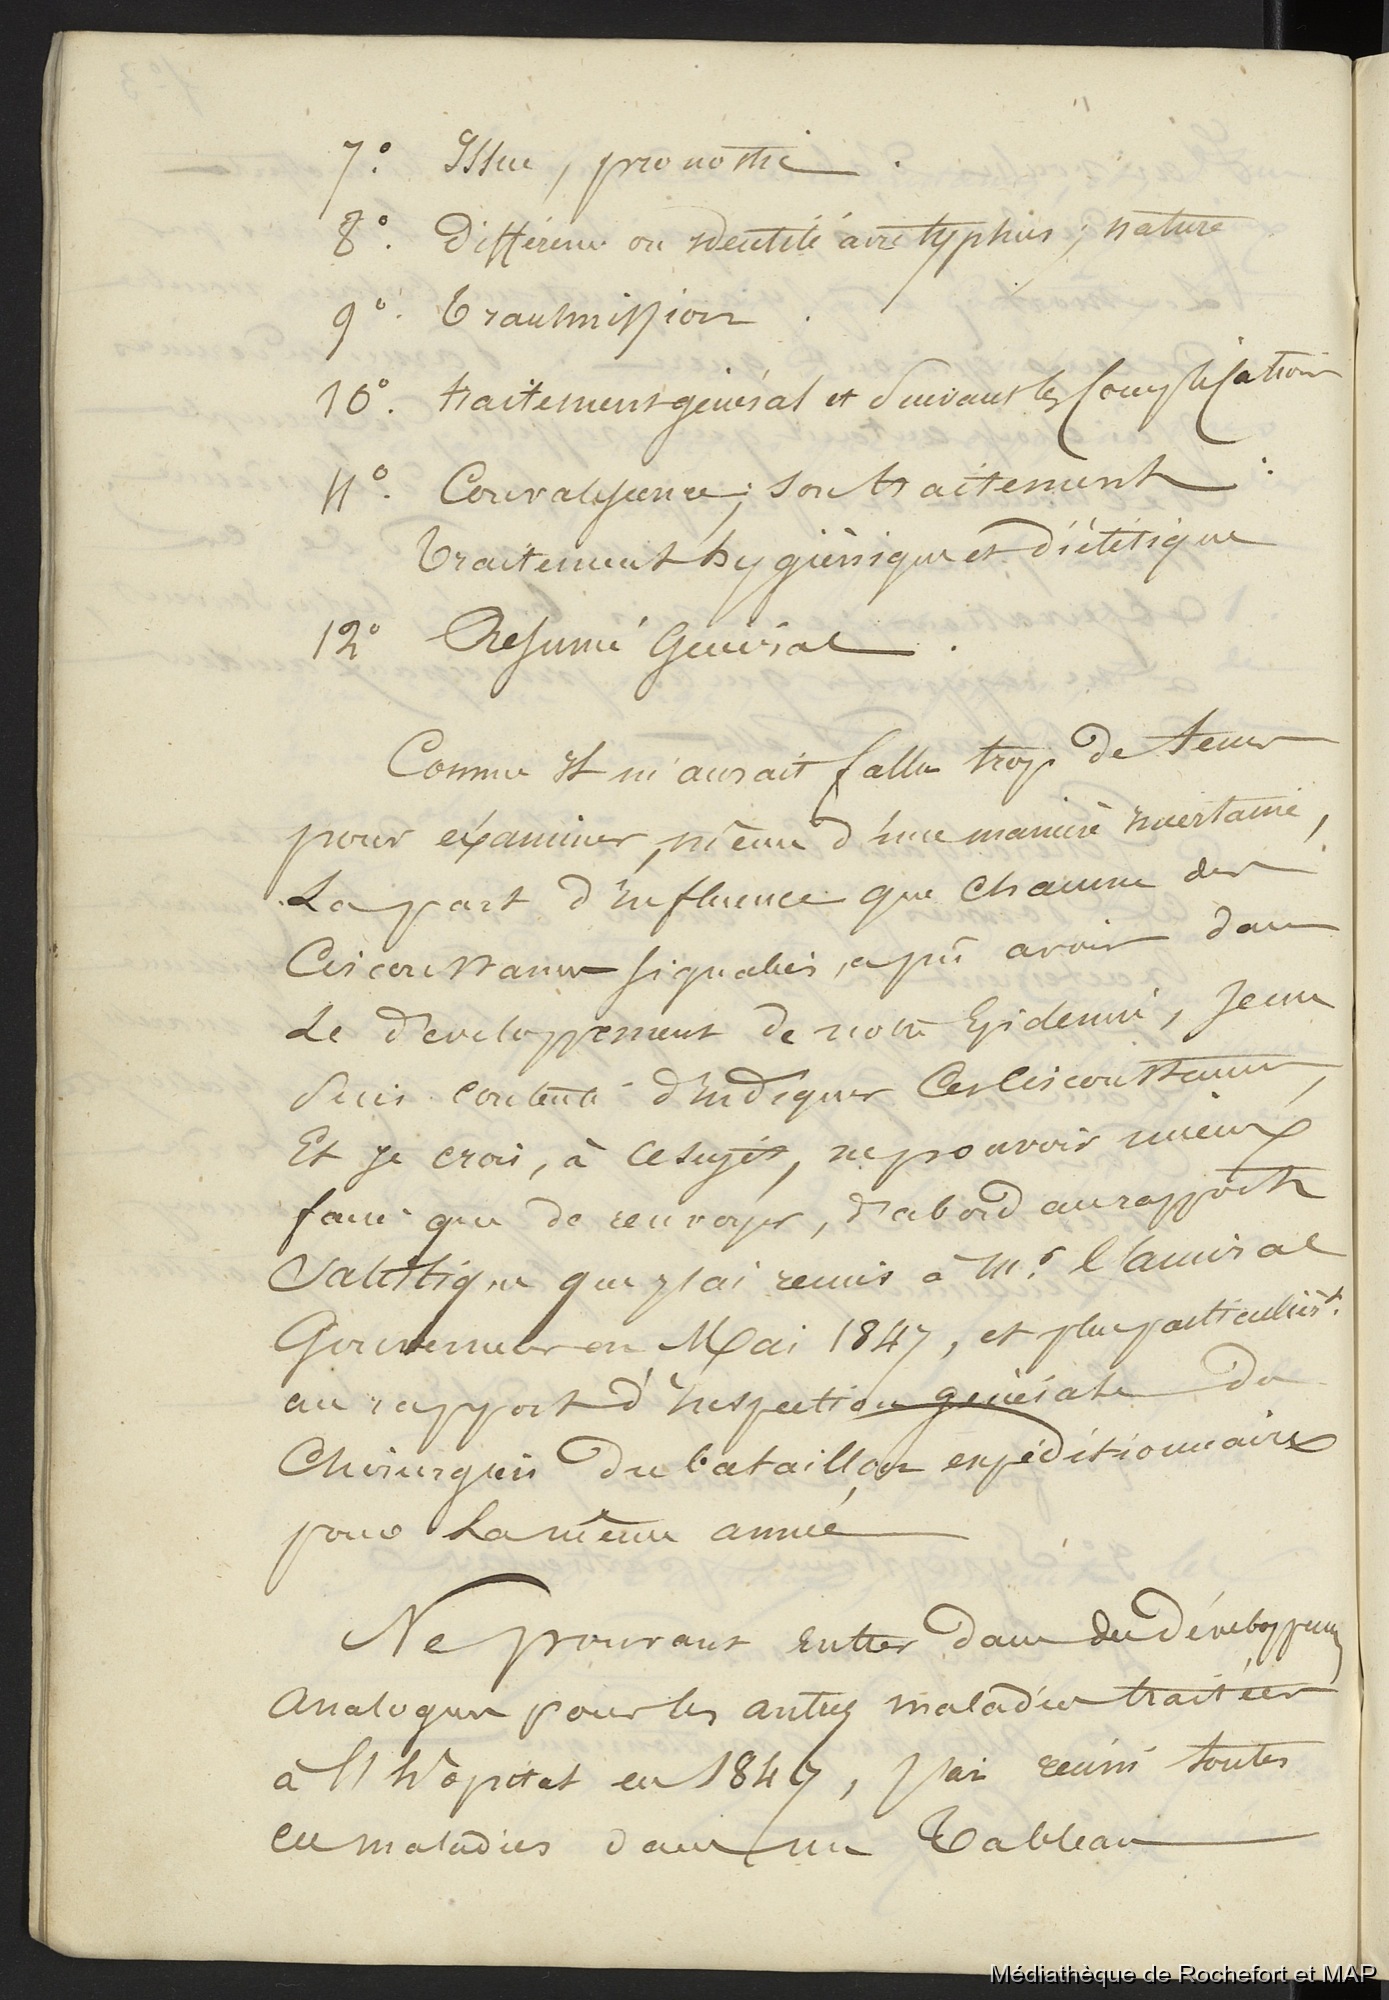 7°. Issue, pronostic.
8°. Différence ou identité avec typhus; nature
9°. Transmission.
10°. traitement général et suivant les Complications
11°. Convalescence; son traitement:
Traitement hygiènique et diététique
12° Résumé Général.
Comme il m'aurait fallu trop de tems
pour éxaminer, même d'une manière incertaine,
La part d'influence que chacune des
Circonstances signalées, a pû avoir dans
Le développement de notre Epidémie, Je me
suis contenté d'indiquer Ces Circonstances,
Et je crois, à ce sujet, ne pouvoir mieux
faire que de renvoyer, d'abord au rapport
Statistique que j'ai remis à Mr. l'amiral
Gouverneur en Mai 1847, et plus particulièrt.
au rapport d'inspection générale du
Chirurgien du bataillon expéditionnaire
pour La même année
Ne pouvant entrer dans des Développemens
Analogues pour les autres maladies traitées
à l'hôpital en 1847, j'ai réuni toutes
ces maladies dans un Tableau
Médiathèque de Rochefort et MAP